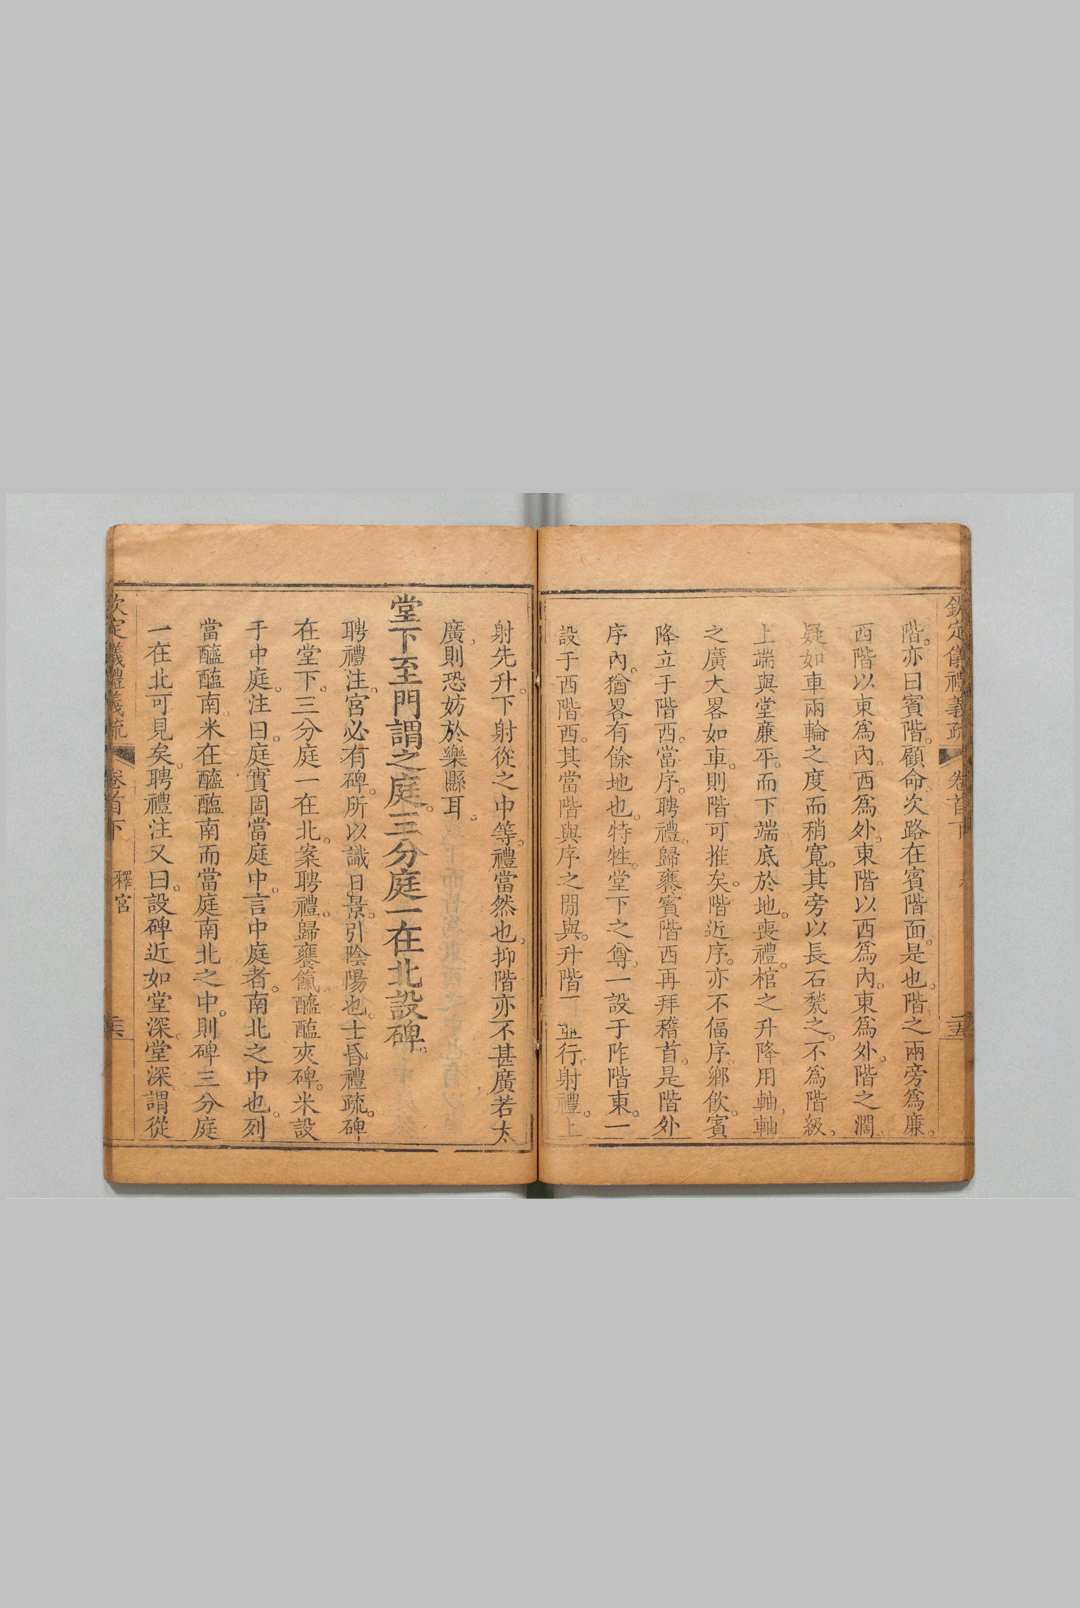 欽定儀禮義疏 卷首下 二五
階亦曰賓階顧命次路在賓階面是也階之兩旁爲廉
西階以東爲內西爲外東階以西爲內東爲外階之濶
疑如車兩輪之度而稍寬其旁以長石甃之不爲階級
上端與堂廉平而下端底於地喪禮棺之升降用軸軸
之廣大畧如車則階可推矣階近序亦不偪序鄉飲賓
降立于階西當序聘禮歸饔賓階西再拜稽首是階外
序內猶畧有餘地也特牲堂下之尊一設于阼階東一
設于西階西其當階與序之閒與升階 並行射禮上
射先升下射從之中等禮當然也抑階亦不甚廣若太
廣則恐妨於樂縣耳
堂下至門謂之庭三分庭一在北設碑
聘禮注宮必有碑所以識日景引陰陽也士昏禮疏碑
在堂下三分庭一在北案聘禮歸饔餼醯醢夾碑米設
于中庭注曰庭實固當庭中言中庭者南北之中也列
當醯醢南米在醯醢南而當庭南北之中則碑三分庭
一在北可見矣聘禮注又曰設碑近如堂深堂深謂從
欽定儀禮義疏 卷首下 釋宮 二六